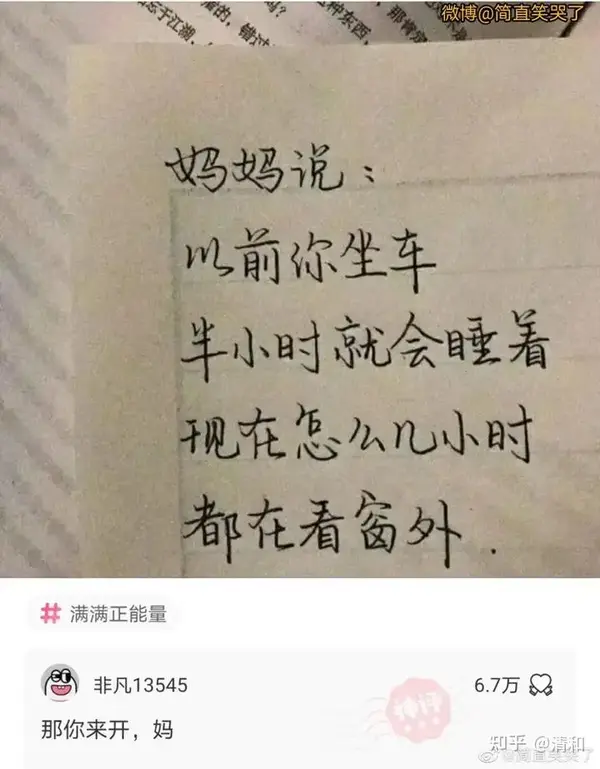 微博@简直笑哭了
妈妈说：
以前你坐车
半小时就会睡着
现在怎么几小时
都在看窗外.
# 满满正能量
非凡13545
6.7万
神评
那你来开，妈
知乎 @清和
@简直笑哭了